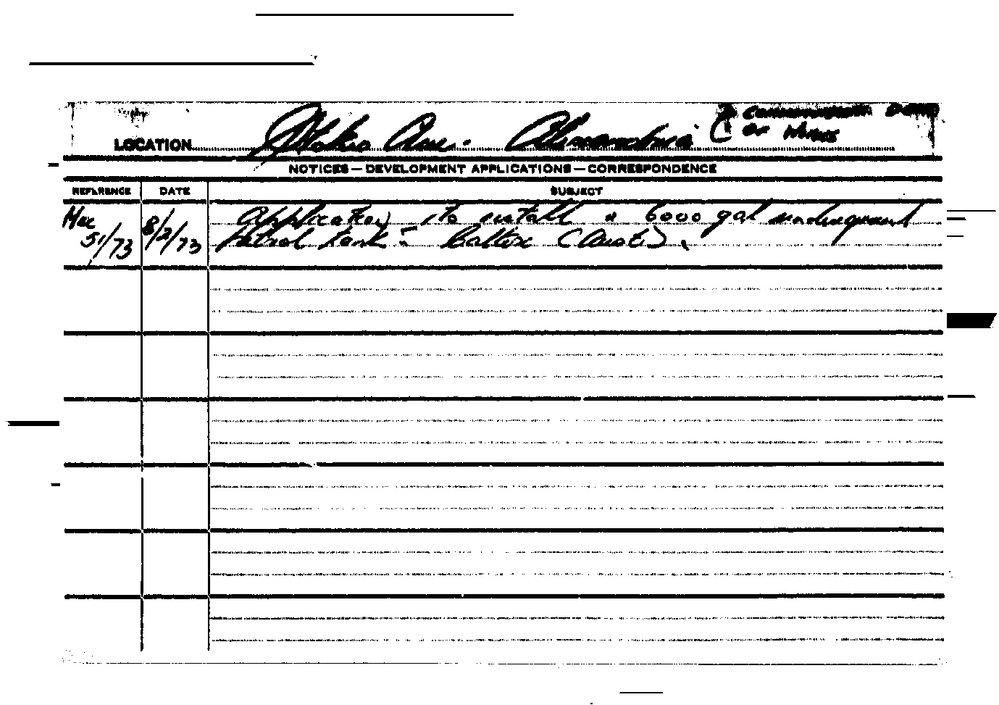 ( Commonwealth Dept
LOCATION Ave. Alexandria of Works
NOTICES — DEVELOPMENT APPLICATIONS — CORRESPONDENCE
REFERENCE DATE SUBJECT
51/73 8/2/73 Application to install a 6000 gal underground
petrol tank - Caltex (Aust).